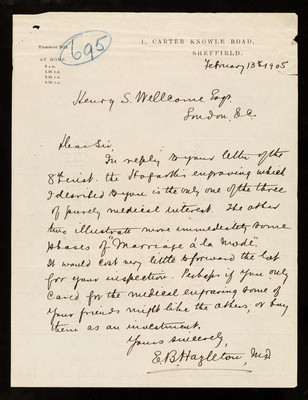 1, CARTER KNOWLE ROAD,
SHEFFIELD.
695
AT HOME
9 a.m.
February 13th 1905
Henry S. Wellcome Esqr.
London, E.C.
Dear Sir,
In reply to your letter of the
8th inst. the Hogarth engraving which
I described to you is the only one of the three
of purely medical interest. The other
two illustrate more immediately some
phases of "Marriage à la Mode".
It would cost very little to forward the lot
for your inspection. Perhaps if you only
cared for the medical engraving some of
your friends might like the others, or buy
them as an investment.
Yours sincerely,
E.B. Hazleton, M.D.